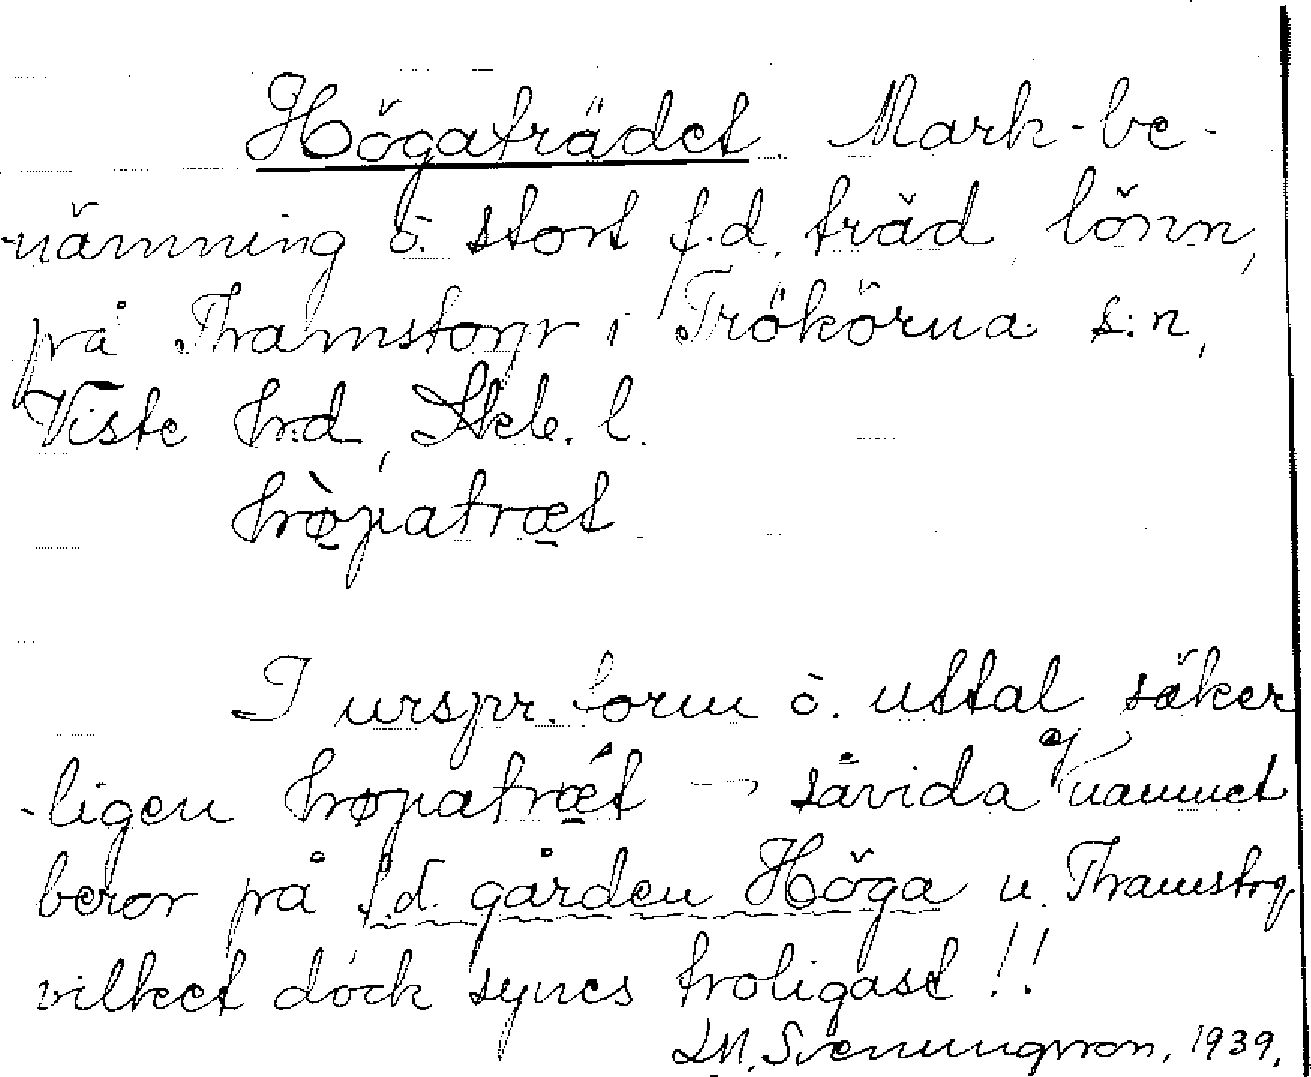 Högaträdet Mark-be-
nämning o. stort f.d. träd, lönn,
på Thamstorp i Trökörna s:n,
Viste hrd, Skb. l.

I urspr. form o. uttal säker
-ligen – såvida ej namnet
beror på f.d. gården Höga u. Thamstorp,
vilket dock synes troligast!!
Svenungsson, 1939.